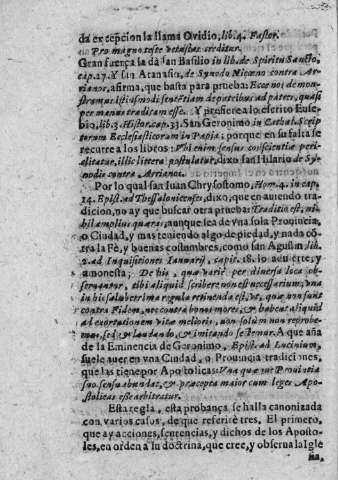 da excepcion la llama Ovidio, lib. 4. Fastor.
Pro magno teste vetustas creditur.
Gran fuerça la dà san Basilio in lib. de Spiritu Sancto,
cap. 27. Y san Atanasio, de Synodo Nicæno contra Ar-
rianos, afirma, que basta para prueba: Ecce nos demon-
stramus istiusmodi sententiam de patribus ad patres, quasi
per manus traditam esse. Y prefiere a lo escrito Euse-
bio, lib. 3. Histor. cap. 33. San Geronimo in Cathal. Scrip
torum Ecclesiasticorum in Papia; porque en su falta se
recurre a los libros: Vbi enim sensus conscientiæ peri-
clitatur, illic littera postulatur, dixo san Hilario de Sy-
nodis contra Arrianos.
Por lo qual san Iuan Chrysostomo, Hom. 4. in cap.
14. Epist. ad Thessalonicenses, dixo, que en auiendo tra-
dicion, no ay que buscar otra prueba: Traditio est, ni-
hil amplius quæras; aunque sea de vna sola Prouincia,
o Ciudad, y mas teniendo algo de piedad, y nada cõ-
tra la Fè, y buenas costumbres, como san Agustin lib.
2. ad Inquisitiones Ianuarij, cap. 18. lo aduierte, y
amonesta; De his, quæ variè per diversa loca ob-
seruantur, tibi aliquid scribere non est necessarium, vna
in his saluberrima regula retinenda est, vt, quæ non sunt
contra Fidem, nec contra bonos mores, & habent aliquid
ad exortationem vitæ melioris, non solùm non reprobe-
mus, sed & laudando, & imitando sectemur. A que aña
de la Eminencia de Geronimo, Epist. ad Lucinium,
suele auer en vna Ciudad, o Prouincia tradiciones,
que las tienen por Apostolicas: Vna quæque Prouincia
suo sensu abundat, & præcepta maiorum leges Apo-
stolicas esse arbitratur.
Esta regla, esta probança se halla canonizada
con varios casos, de que referirè tres. El primero,
que ay acciones, sentencias, y dichos de los Aposto-
les, en orden a su doctrina, que cree, y obserua la Igle